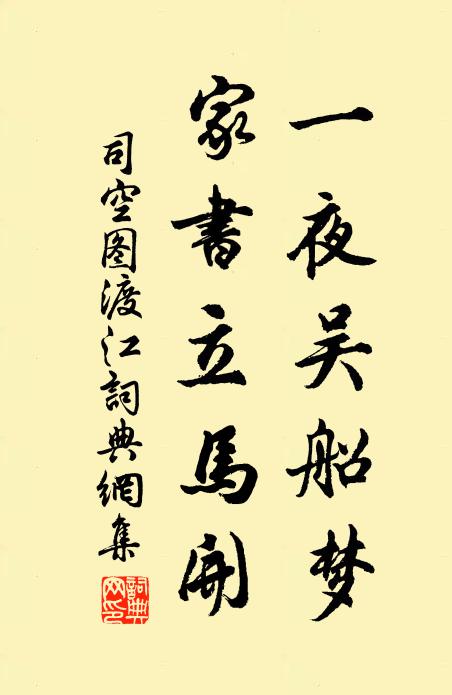 一夜吴船梦
家書立馬開
司空图渡江詞典網集
詞典网印